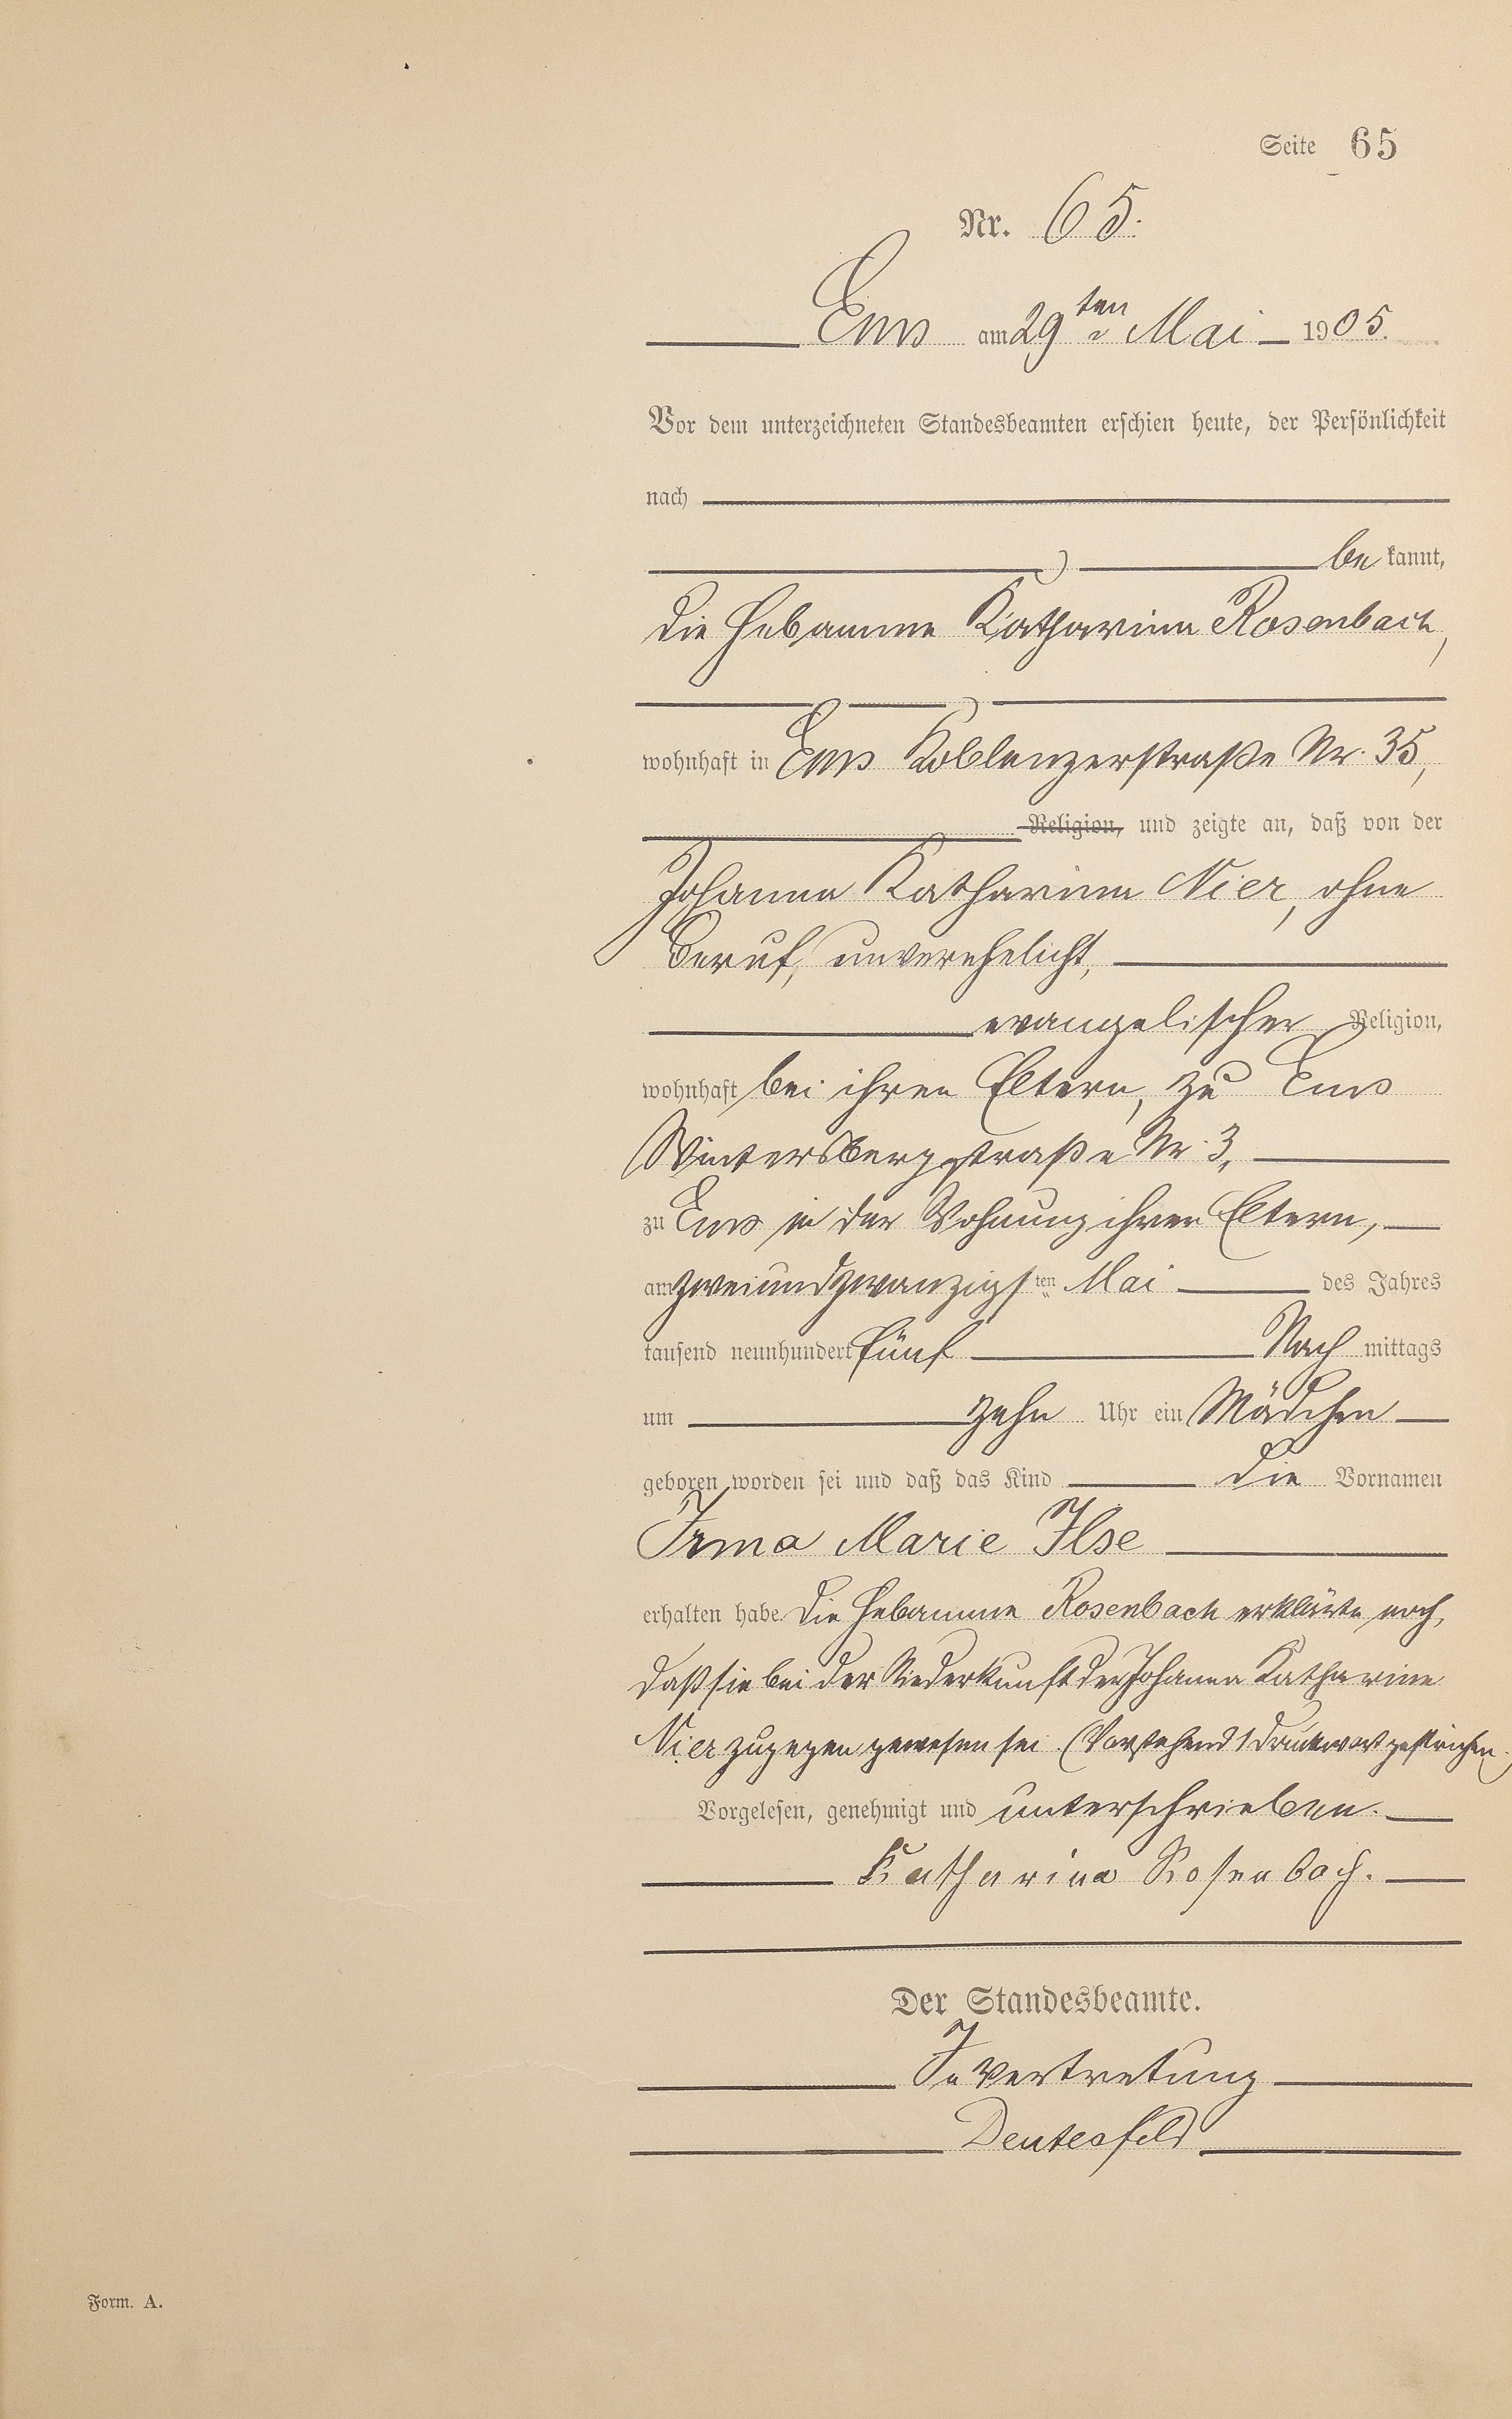 Seite 65
Nr. 65.
Ems am 29ten Mai 1905.
Vor dem unterzeichneten Standesbeamten erschien heute, der Persönlichkeit
nach
be kannt,
die Hebamme Katharina Rosenbach,
wohnhaft in Ems Koblenzerstraße Nr. 35,
Religion, und zeigte an, daß von der
Johanna Katharina Nier, ohne
Beruf, unverehelicht,
evangelischer Religion,
wohnhaft bei ihren Eltern, zu Ems
Wintersbergstraße Nr. 3,
zu Ems in der Wohnung ihrer Eltern,
am zweiundzwanzigsten Mai des Jahres
tausend neunhundert fünf Nach mittags
um zehn Uhr ein Mädchen
geboren worden sei und daß das Kind die Vornamen
Irma Marie Ilse
erhalten habe. Die Hebamme Rosenbach erklärte noch,
daß sie bei der Niederkunft der Johanna Katharina
Nier zugegen gewesen sei. (Vorstehend 1 Druckwort gestrichen.)
Vorgelesen, genehmigt und unterschrieben.
Katharina Rosenbach.
Der Standesbeamte.
In Vertretung
Deutesfeld
Form. A.